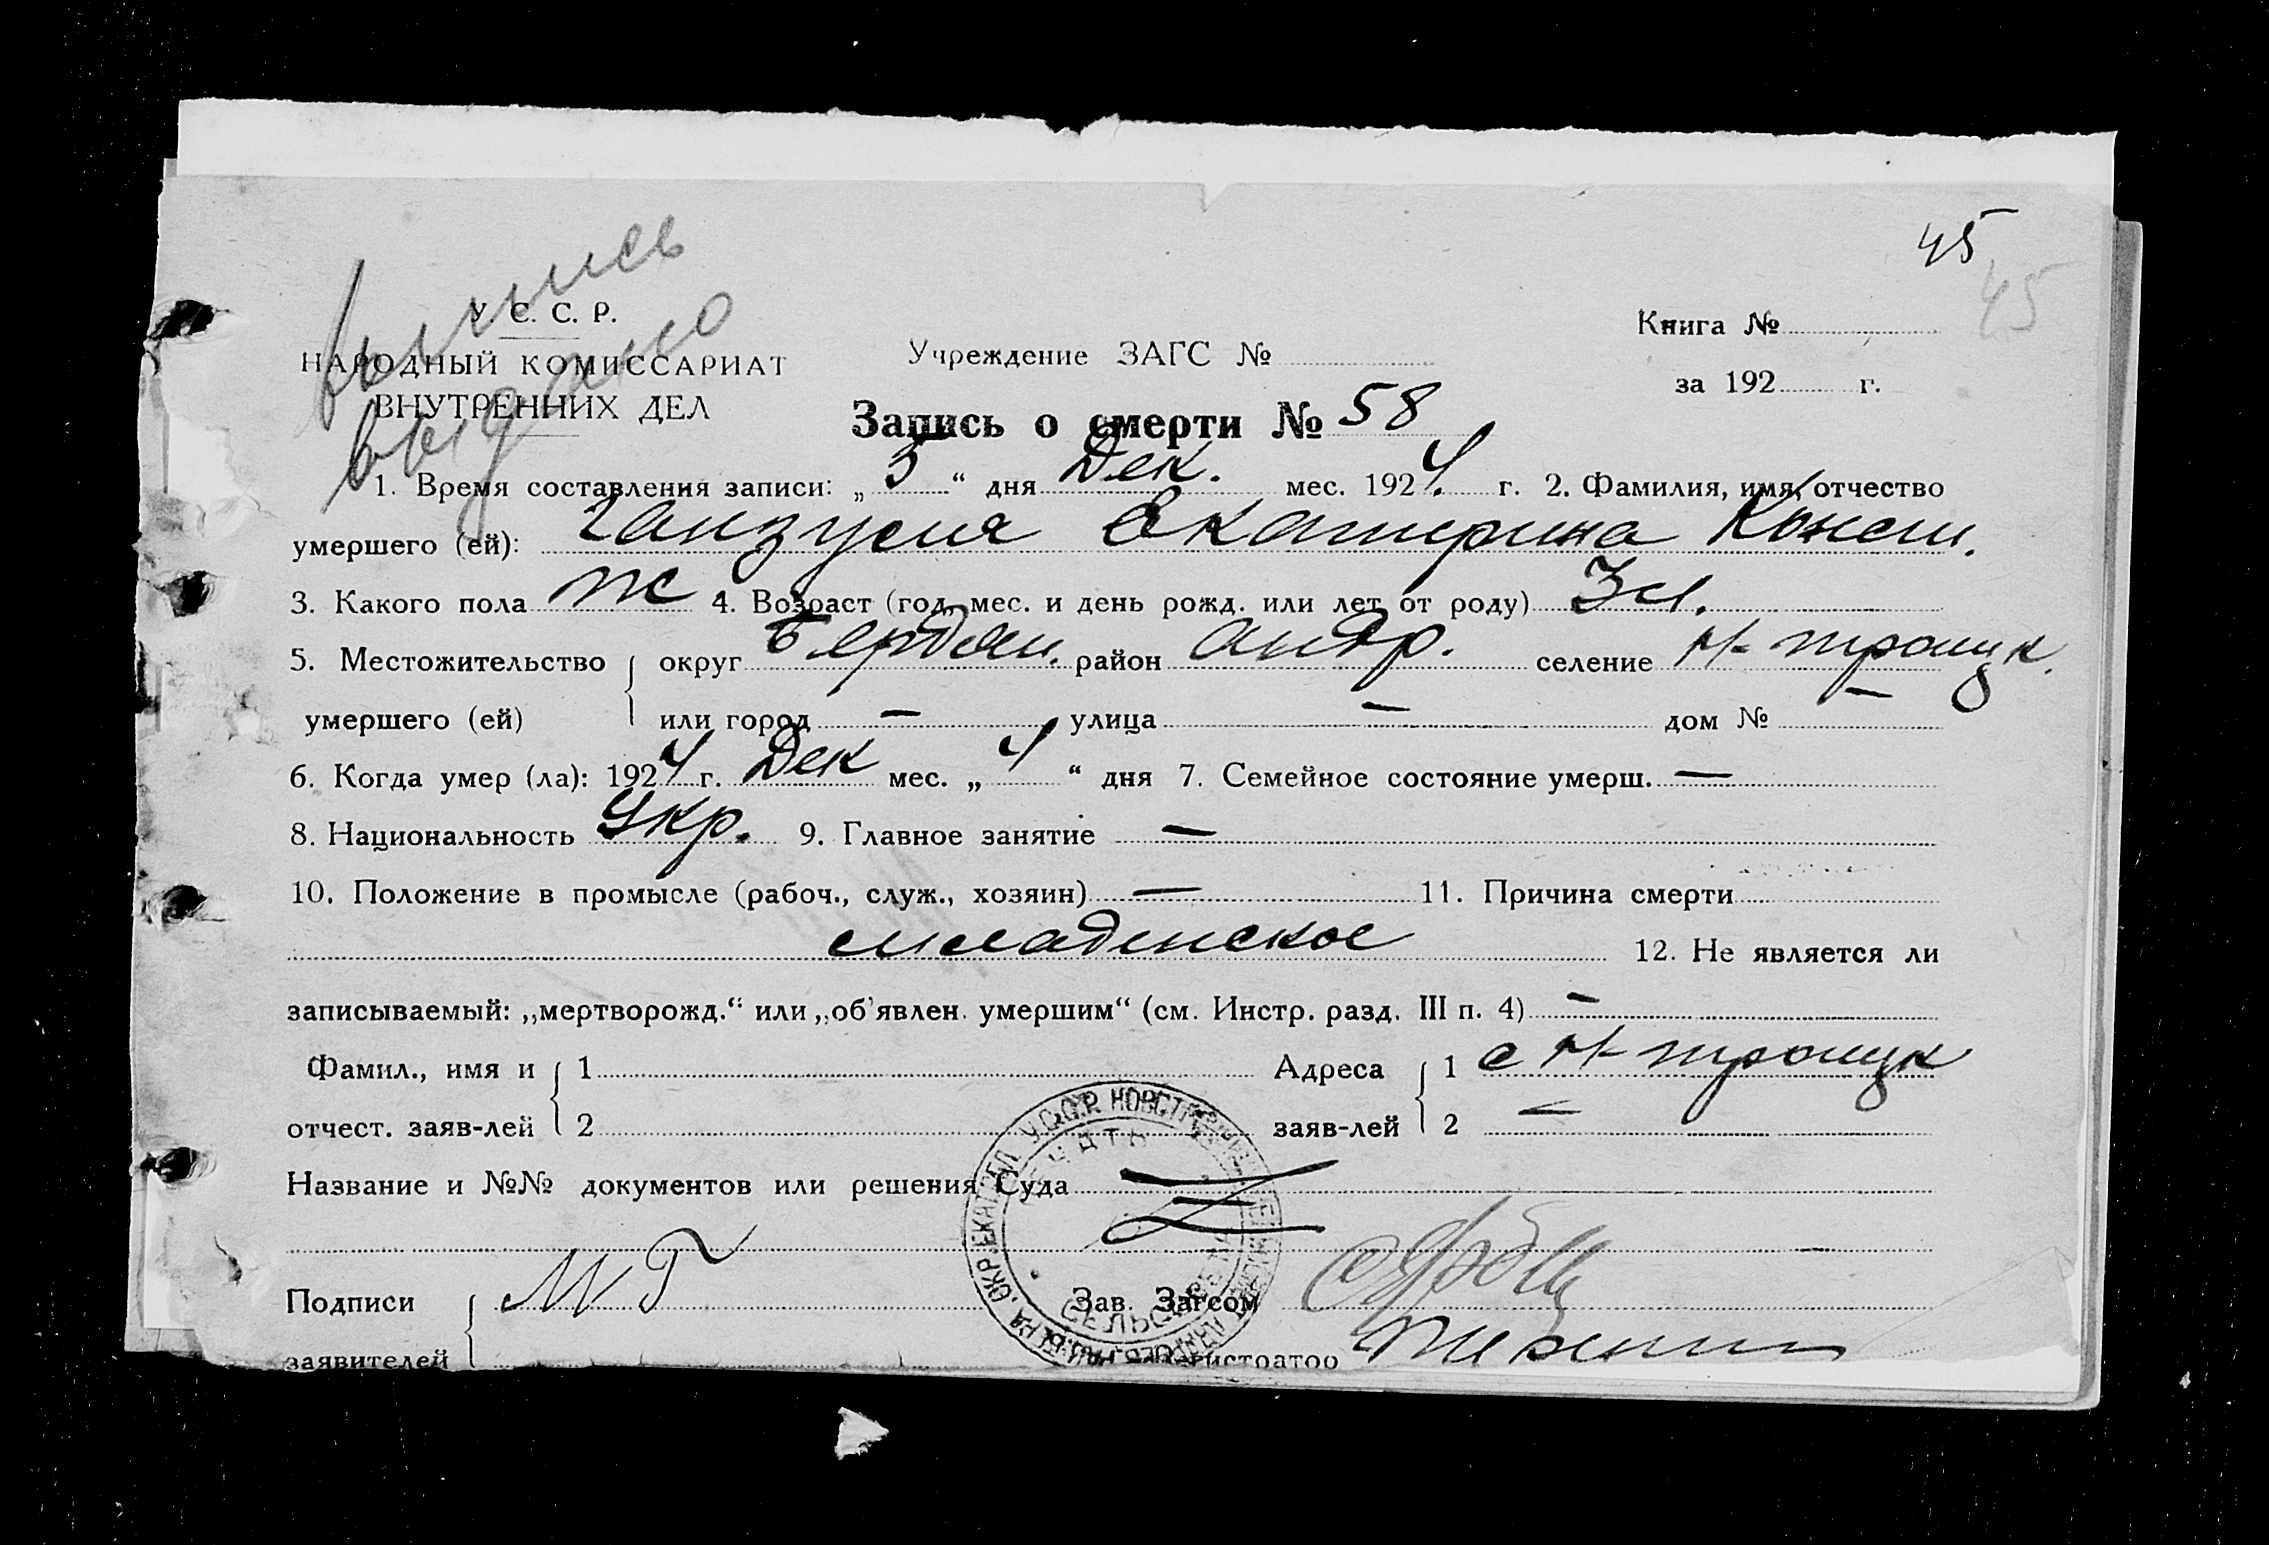 45
45
выпись
выдано
У. С. С. Р.
НАРОДНЫЙ КОМИССАРИАТ
ВНУТРЕННИХ ДЕЛ
Учреждение ЗАГС №
Книга №
за 192 г.
Запись о смерти № 58
1. Время составления записи: „5“ дня Дек. мес. 1924. г. 2. Фамилия, имя, отчество
умершего (ей): Екатерина
3. Какого пола ж 4. Возраст (год, мес. и день рожд. или лет от роду)
5. Местожительство округ Бердян. район Андр. селение Н-троицк.
умершего (ей) или город — улица — дом № —
6. Когда умер (ла): 1924 г. Дек мес. „4“ дня 7. Семейное состояние умерш. —
8. Национальность Укр. 9. Главное занятие —
10. Положение в промысле (рабоч., служ., хозяин) — 11. Причина смерти
младенское 12. Не является ли
записываемый: „мертворожд.“ или „об'явлен. умершим“ (см. Инстр. разд. III п. 4) —
Фамил., имя и 1 Адреса 1 с Н-троицк
отчест. заяв-лей 2 заяв-лей 2 —
Название и №№ документов или решения Суда
Подписи Зав. Загсом
заявителей